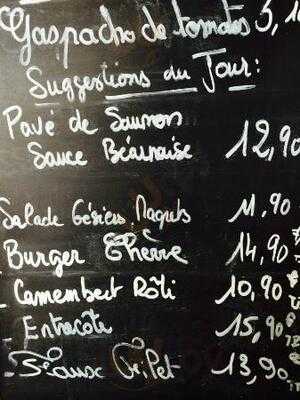 Gaspacho de tomates 5,
Suggestions du Jour:
Pavé de Saumon
Sauce Béarnaise 12,90
Salade Gésiers, Magrets 11,90
Burger Chèvre 14,90
- Camembert Rôti 10,90
- Entrecôte 15,90
- Faux Filet 13,90